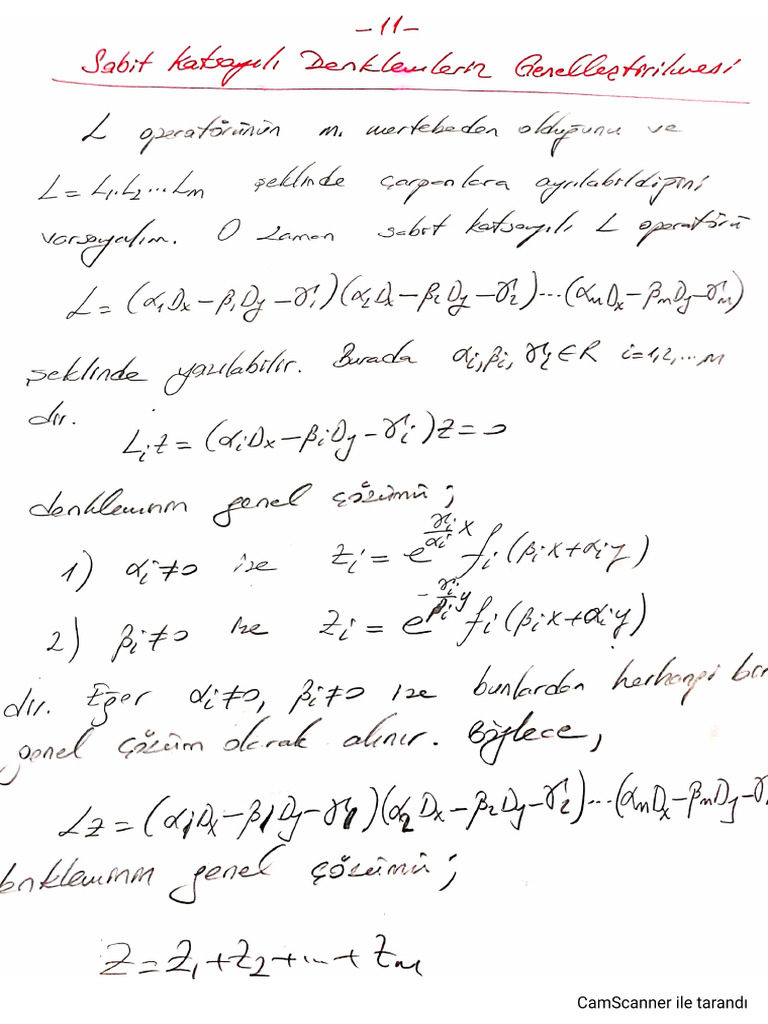 -11-
Sabit Katsayılı Denklemlerin Genelleştirilmesi
L operatörünün m. mertebeden olduğunu ve
L = L₁.L₂...Lₘ şeklinde çarpanlara ayrılabildiğini
varsayalım. O zaman sabit katsayılı L operatörü
L = (α₁Dx - β₁Dy - γ₁)(α₂Dx - β₂Dy - γ₂)...(αₘDx - βₘDy - γₘ)
şeklinde yazılabilir. Burada αᵢ, βᵢ, γᵢ ∈ R i=1,2,...m
dır.
Lᵢz = (αᵢDx - βᵢDy - γᵢ)z = 0
denkleminin genel çözümü;
1) αᵢ ≠ 0 ise zᵢ = e^{(γᵢ/αᵢ)x} fᵢ(βᵢx + αᵢy)
2) βᵢ ≠ 0 ise zᵢ = e^{-(γᵢ/βᵢ)y} fᵢ(βᵢx + αᵢy)
dır. Eğer αᵢ ≠ 0, βᵢ ≠ 0 ise bunlardan herhangi bir
genel çözüm olarak alınır. Böylece,
Lz = (α₁Dx - β₁Dy - γ₁)(α₂Dx - β₂Dy - γ₂)...(αₘDx - βₘDy - γ
denkleminin genel çözümü;
Z = Z₁ + Z₂ + ... + Zₘ
CamScanner ile tarandı